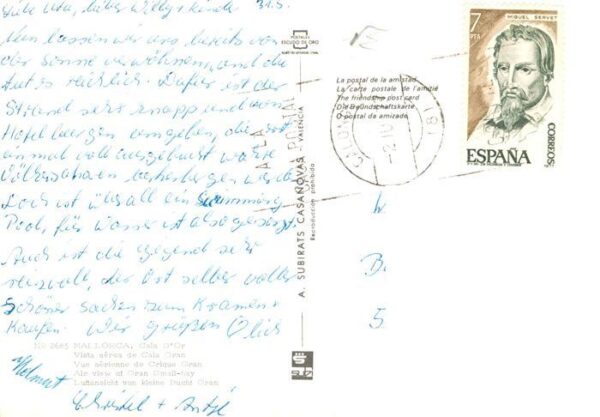 liebe Uta, lieber Willy + Kinder 31.5.
Nun lassen wir uns bereits von
der Sonne verwöhnen, und die
tut es reichlich. Dafür ist der
Strand sehr knapp und von
Hotelburgen umgeben, die erst
einmal voll ausgebucht wahre
Völkerscharen beherbergen werden
Doch ist überall ein Swimming
Pool, für Wasser ist also gesorgt.
Auch ist die Gegend sehr
reizvoll, der Ort selber voller
schöner Sachen zum Kramen +
Kaufen. Wir grüßen Dich
Helmut
Christel + Antje
No 2685 MALLORCA, Cala D'Or
Vista aérea de Cala Gran
Vue aérienne de Crique Gran
Air view of Gran Small-bay
Luftansicht von kleine Bucht Gran
POSTALES
ESCUDO DE ORO
A. SUBIRATS CASANOVAS - VALENCIA
Reproducción prohibida
La postal de la amistad
La carte postale de l'amitié
The friendship post card
Die Freundschaftskarte
O postal da amizade
7
PTS
MIGUEL SERVET
CORREOS
ESPAÑA
B.
5